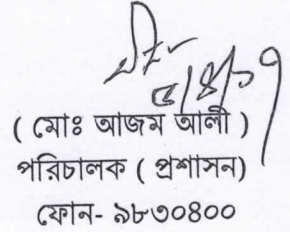 ( মোঃ আজম আলী )
পরিচালক ( প্রশাসন)
ফোন- ৯৮৩০৪০০